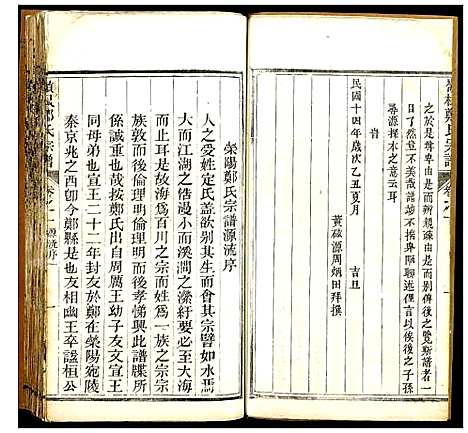 之於是聲卑由是而辨親疎由是而別俾後之覽斯譜者一
目了然豈不美哉譜旣告竣不揣俚言以俟後之子孫
尋源探本之意云耳
旹
民國十四年歲次乙丑夏月 吉旦
黃磁源周炳田拜撰
滎陽鄭氏宗譜源流序
人之受姓定氏蓋欲別其生而會其宗譬如水焉
大而江湖之浩漫小而溪澗之瀠紆要必至大海
而止耳是故海爲百川之宗而姓爲一族之宗宗
族敦而後倫理明倫理明而後孝悌興此譜牒所
從來也按鄭氏出自周厲王幼子友文宣王
同母弟也宣王二十二年封友於鄭在滎陽宛陵
秦京兆之西卽今鄭縣是也友相幽王卒諡桓公
鄭氏宗譜
卷之一
源流序
一